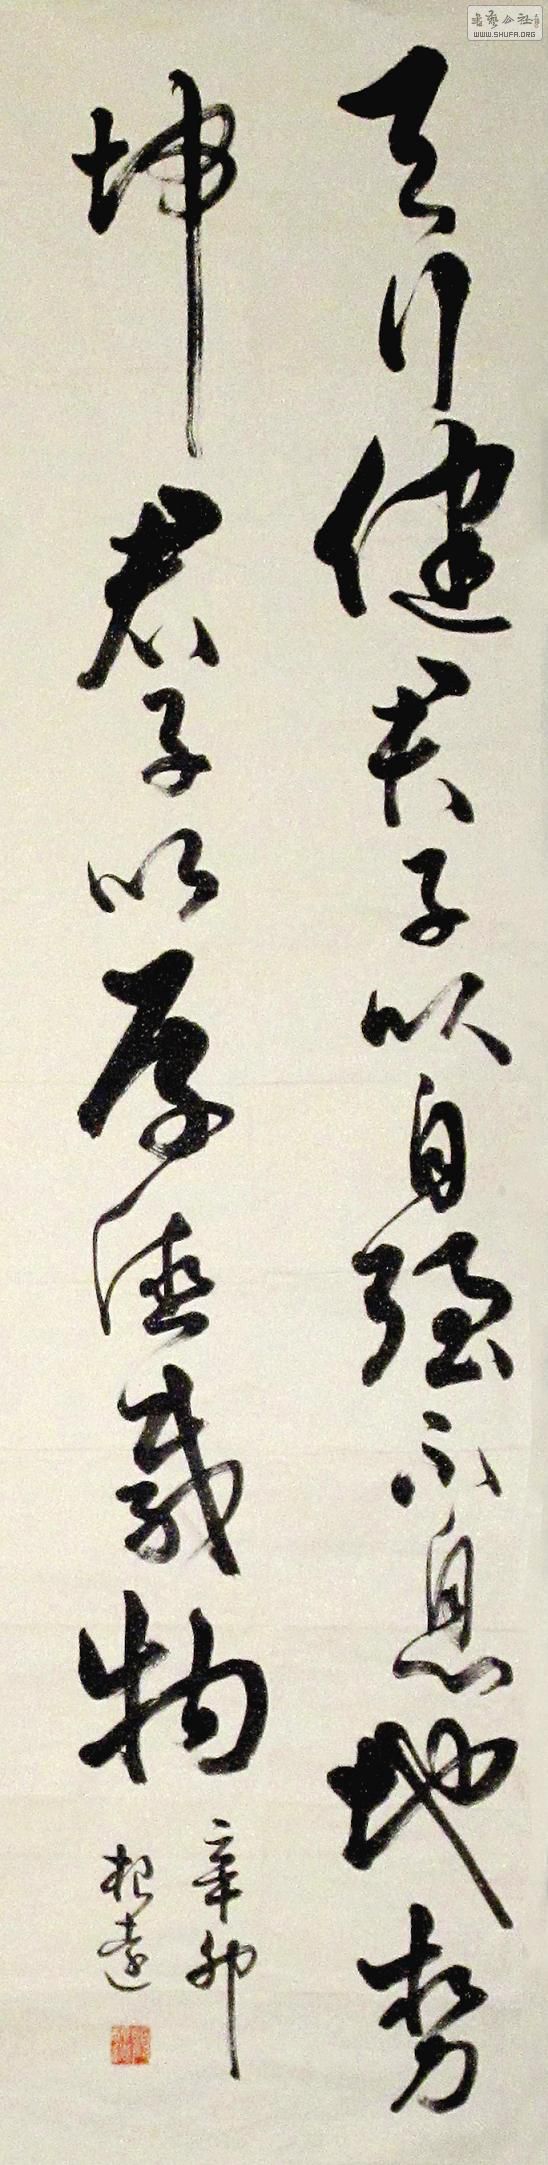 天行健君子以自强不息地势
坤君子以厚德载物
辛卯
根远
书艺公社
WWW.SHUFA.ORG